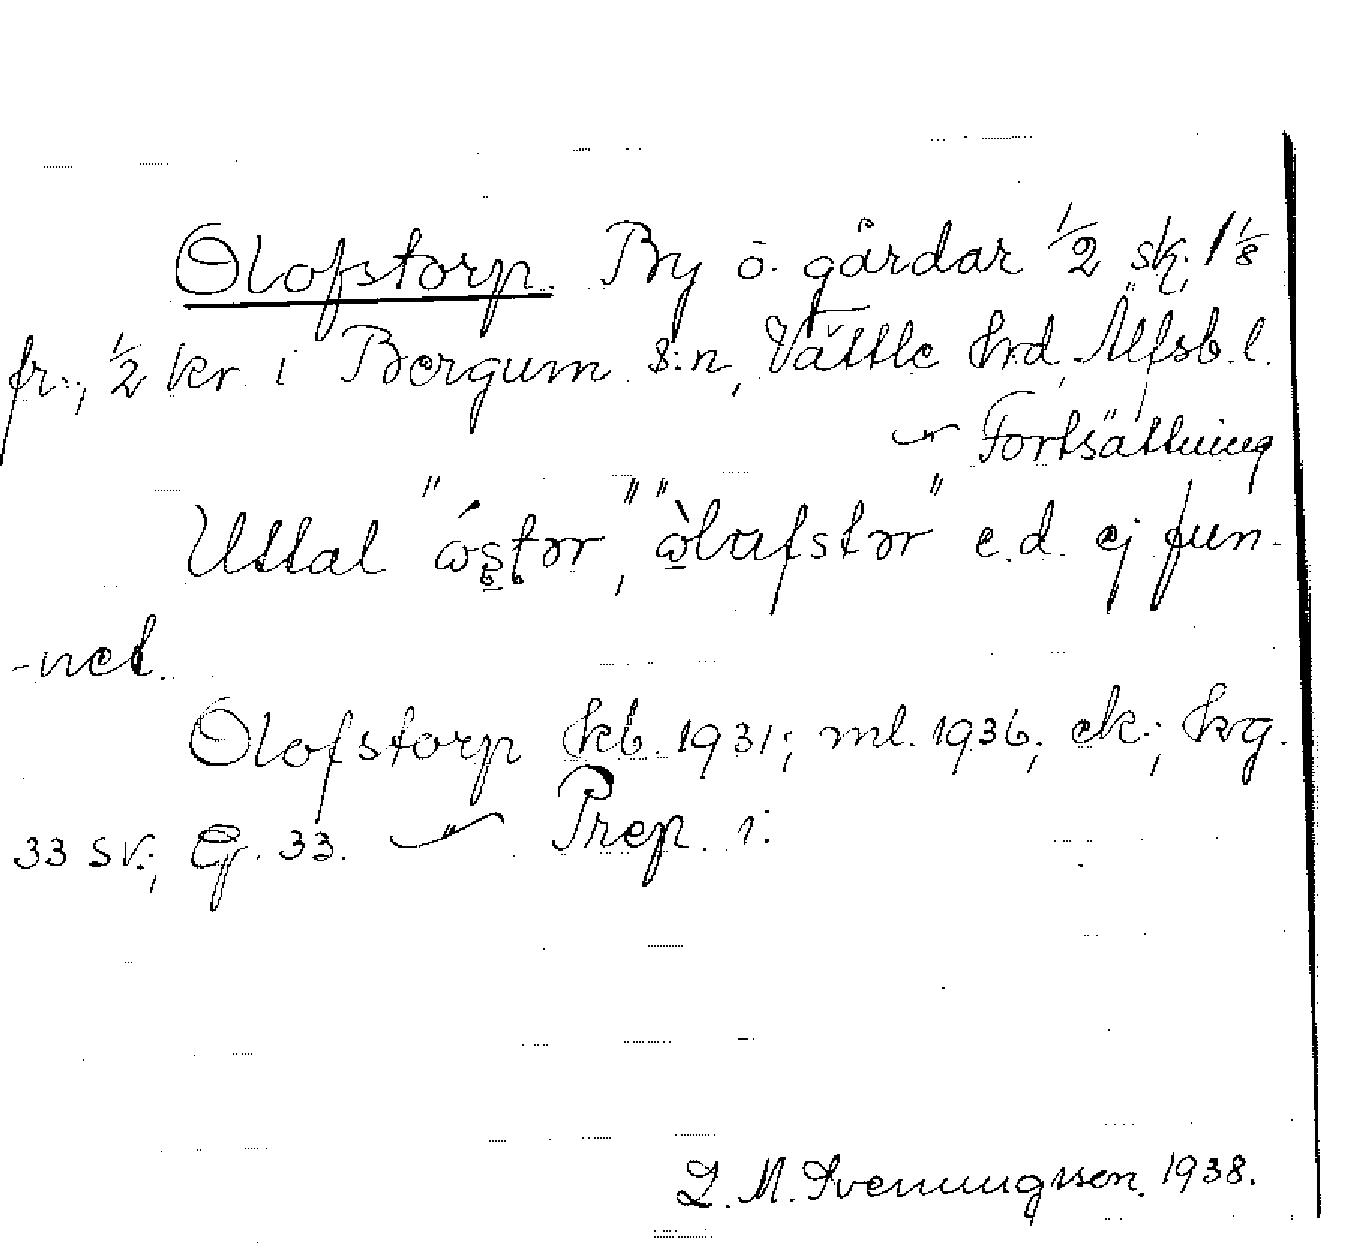 Olofstorp. By o. gårdar 1/2 sk, 1 1/8
fr., 1/2 kr i Bergum s:n, Vättle hrd, Älfsb. l.
Fortsättning
Uttal "ώs̨t̨ər", "ὼlafstər" e.d. ej fun-
-net.
Olofstorp kb. 1931; ml. 1936; ek.; hrg.
33 sv.; G. 33. Prep. i.
L. M. Svenungsson. 1938.